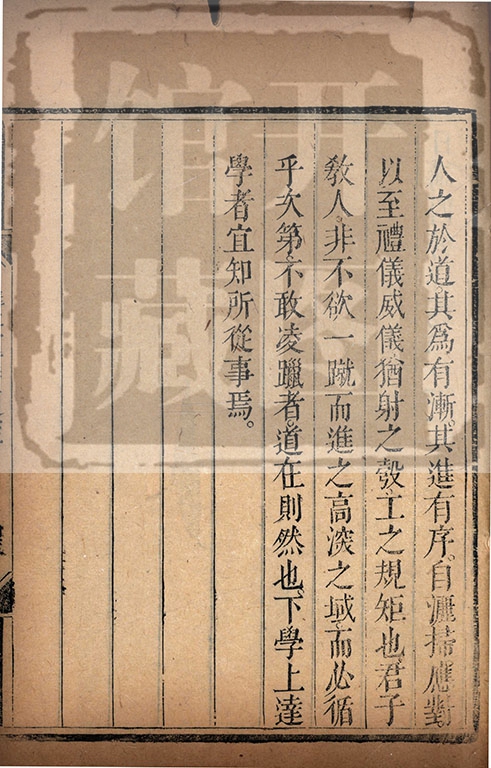 人之於道。其爲有漸。其進有序。自灑掃應對。
以至禮儀威儀。猶射之彀。工之規矩也。君子
敎人。非不欲一蹴而進之高深之域。而必循
乎次第。不敢凌躐者。道在則然也。下學上達
學者宜知所從事焉。